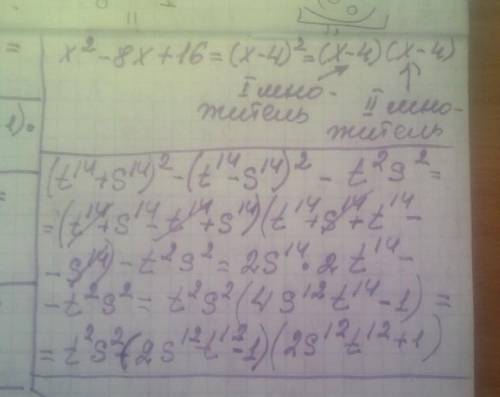 x² - 8x + 16 = (x-4)² = (x-4)(x-4)
I мно-
житель
II мно-
житель
(t¹⁴+s¹⁴)² - (t¹⁴-s¹⁴)² - t²s² =
= (t¹⁴+s¹⁴-t¹⁴+s¹⁴)(t¹⁴+s¹⁴+t¹⁴-
- s¹⁴) - t²s² = 2s¹⁴·2t¹⁴-
- t²s² = t²s²(4s¹²t¹⁴-1) =
= t²s²(2s¹²t¹²-1)(2s¹²t¹²+1)